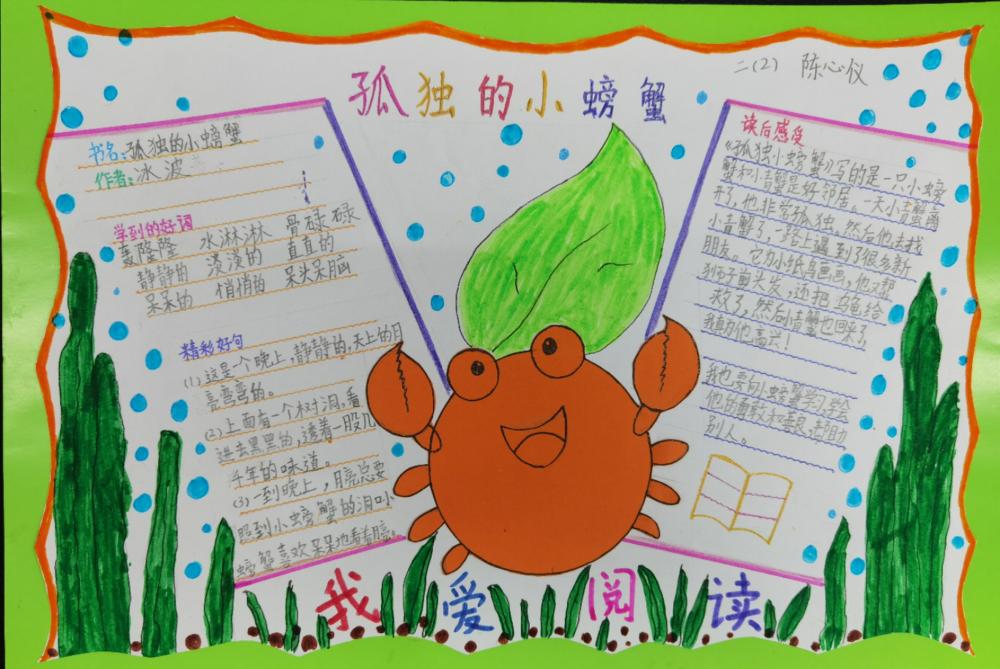 孤独的小螃蟹
二(2) 陈心仪
书名:孤独的小螃蟹
作者:冰波
学到的好词
轰隆隆 水淋淋 骨碌碌
静静的 淡淡的 直直的
呆呆的 悄悄的 呆头呆脑
精彩好句
(1)这是一个晚上,静静的,天上的月
亮弯弯的。
(2)上面有一个树洞,看
进去黑黑的,透着一股几
千年的味道。
(3)一到晚上,月亮总要
照到小螃蟹的洞口小
螃蟹喜欢呆呆地看着月亮。
读后感受
《孤独小螃蟹》写的是一只小螃
蟹和小青蟹是好邻居,一天小青蟹离
开了,他非常孤独。然后他去找
小青蟹了,一路上遇到了很多新
朋友。它为小纸鸟画画,他又帮
狮子剪头发,还把乌龟给
救了,然后小青蟹也回来了
我真为他高兴!
我也要向小螃蟹学习,学会
他的勇敢和善良,帮助
别人。
我爱阅读